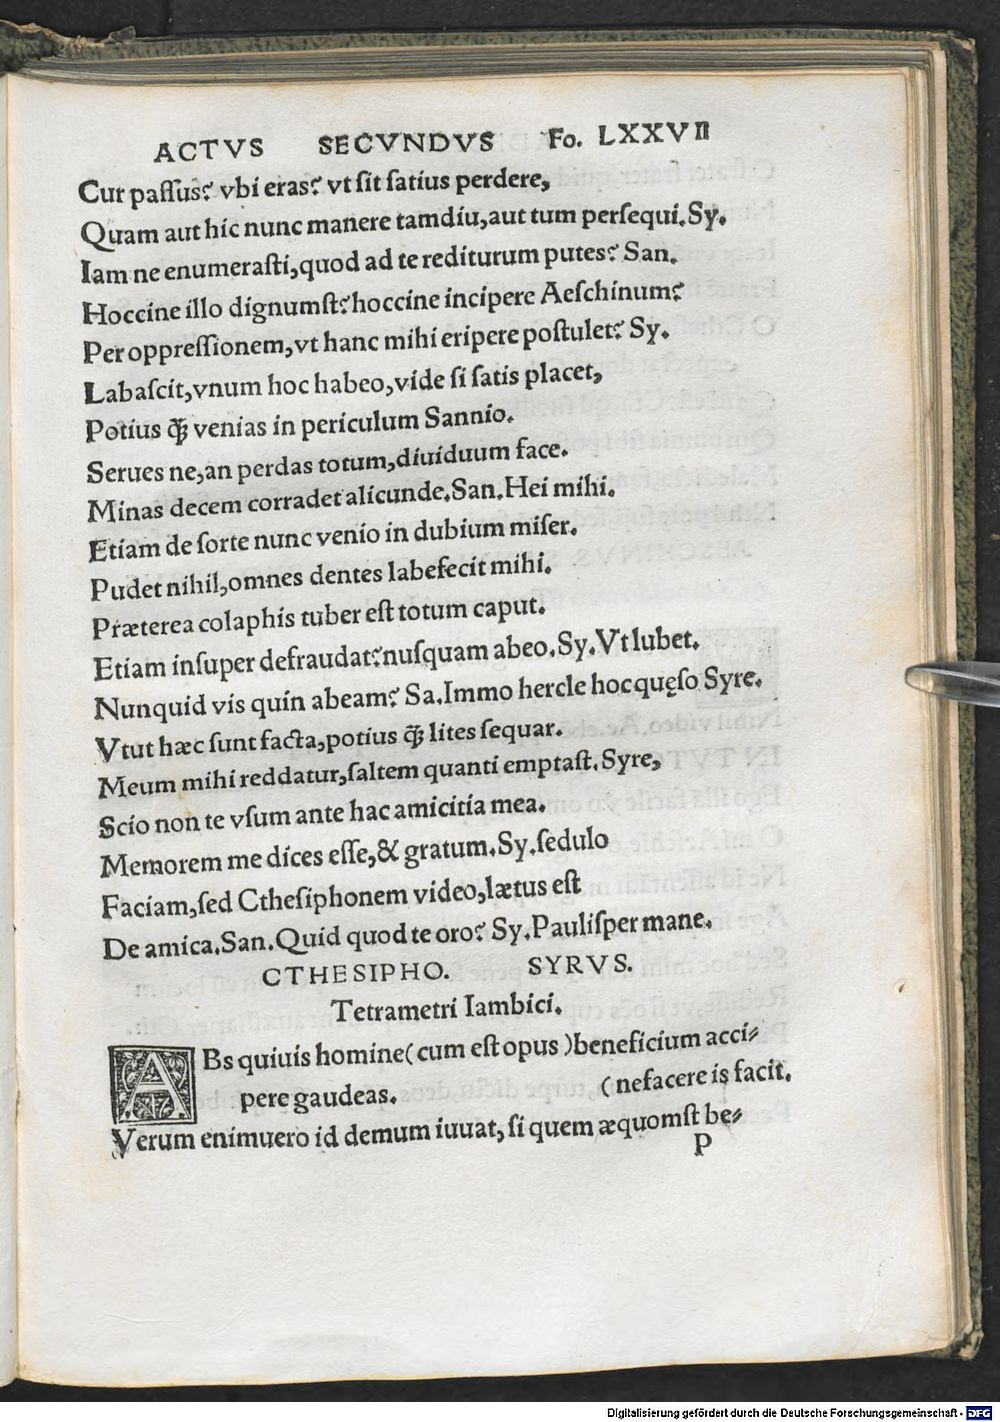 ACTVS SECVNDVS Fo. LXXVII
Cur paſſus? vbi eras? vt ſit ſatius perdere,
Quam aut hic nunc manere tamdiu, aut tum perſequi. Sy.
Iam ne enumeraſti, quod ad te rediturum putes? San.
Hoccine illo dignumſt? hoccine incipere Aeſchinum?
Per oppreſſionem, vt hanc mihi eripere poſtulet? Sy.
Labaſcit, vnum hoc habeo, vide ſi ſatis placet,
Potius q̃ꝫ venias in periculum Sannio.
Serues ne, an perdas totum, diuiduum face.
Minas decem corradet alicunde. San. Hei mihi.
Etiam de ſorte nunc venio in dubium miſer.
Pudet nihil, omnes dentes labefecit mihi.
Præterea colaphis tuber eſt totum caput.
Etiam inſuper defraudat? nuſquam abeo. Sy. Vt lubet.
Nunquid vis quin abeam? Sa. Immo hercle hoc quęſo Syre.
Vtut hæc ſunt facta, potius q̃ꝫ lites ſequar.
Meum mihi reddatur, ſaltem quanti emptaſt. Syre,
Scio non te vſum ante hac amicitia mea.
Memorem me dices eſſe, & gratum. Sy. ſedulo
Faciam, ſed Ctheſiphonem video, lætus eſt
De amica. San. Quid quod te oro? Sy. Pauliſper mane.
CTHESIPHO. SYRVS.
Tetrametri Iambici.
ABs quiuis homine (cum eſt opus) beneficium acci⸗
pere gaudeas. (nefacere is facit.
Verum enimuero id demum iuuat, ſi quem æquomſt be⸗
P
Digitalisierung gefördert durch die Deutsche Forschungsgemeinschaft - DFG